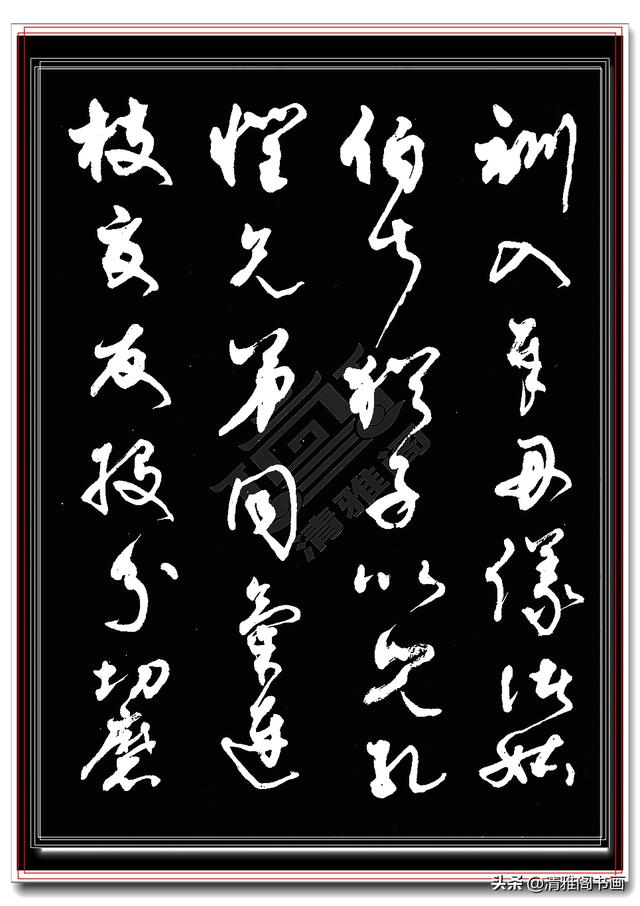 訓入奉母儀諸姑
伯叔猶子比兒孔
懷兄弟同氣連
枝交友投分切磨
清雅阁
头条@清雅阁书画